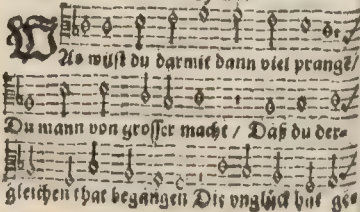 Was wilst du darmit dann viel prangẽ/
Du mann von grosser macht / Daß du der-
gleichen that begangen Die vnglück hat